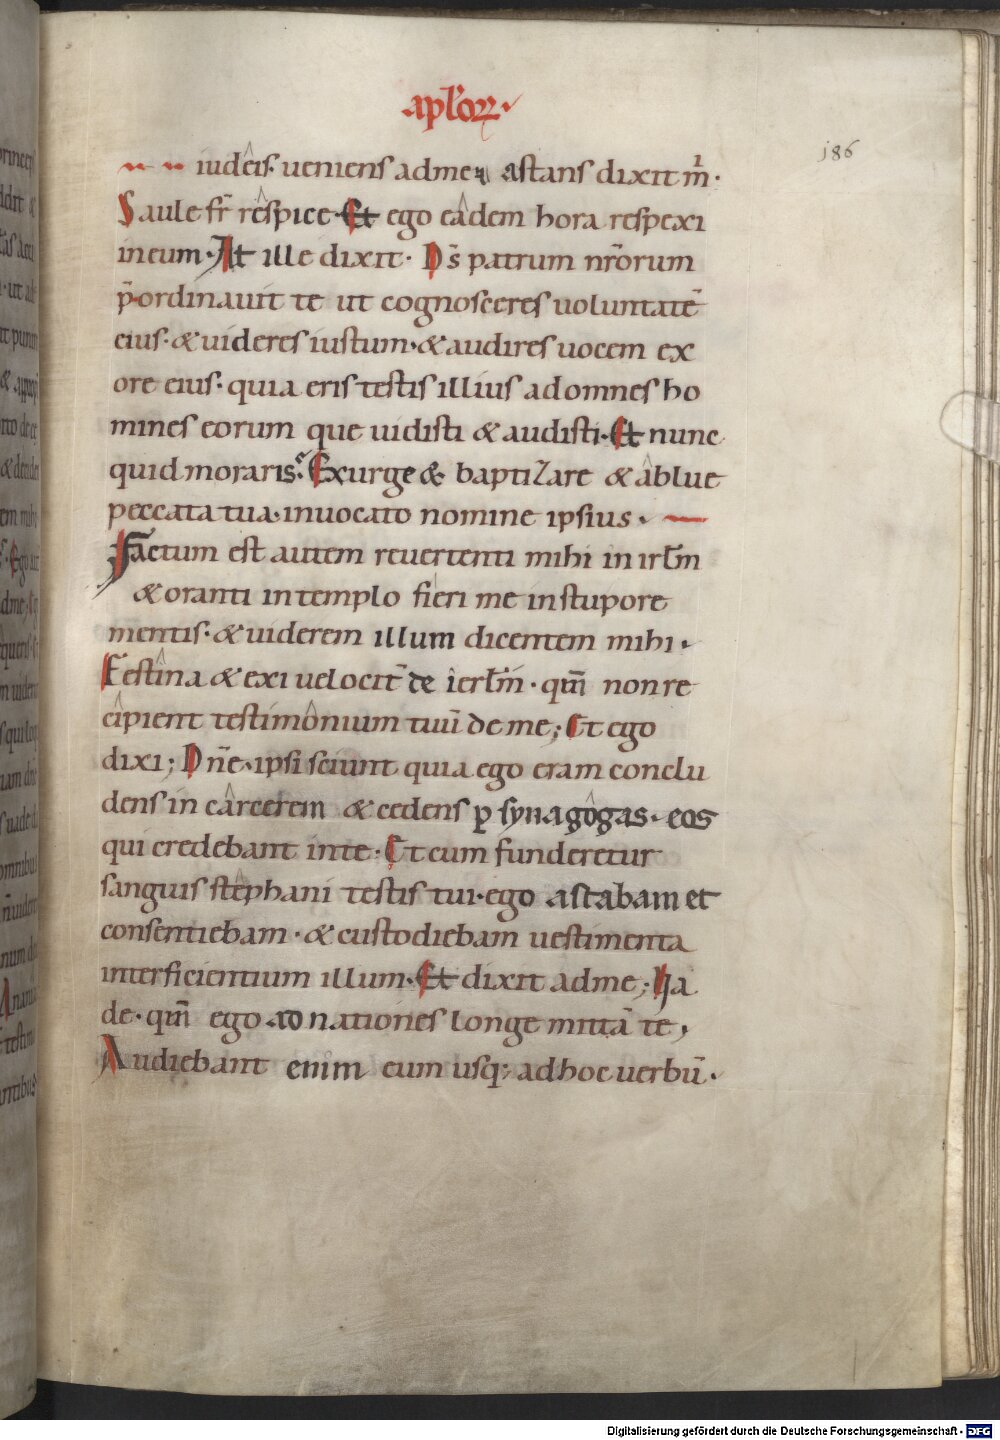 aplorꝝ·
186
iudeis· ueniens ad me & astans dixit m̄·
Saule fr̄ respice· Et ego eadem hora respexi
in eum· At ille dixit· Ds̄ patrum nr̄orum
p̄ordinauit te ut cognosceres uoluntatē
eius· & uideres iustum· & audires uocem ex
ore eius· quia eris testis illius ad omnes ho
mines eorum que uidisti & audisti· Et nunc
quid moraris? Exurge & baptizare & ablue
peccata tua· inuocato nomine ipsius·
Factum est autem reuertenti mihi in irlm̄
& oranti in templo fieri me in stupore
mentis· & uiderem illum dicentem mihi·
Festina & exi uelocit̄ de ierlm̄· qm̄ non re
cipient testimonium tuū de me; Et ego
dixi; Dn̄e· ipsi sciunt quia ego eram conclu
dens in carcerem & cedens ꝑ synagogas· eos
qui credebant in te· Et cum funderetur
sanguis stephani testis tui· ego astabam et
consentiebam· & custodiebam uestimenta
interficientium illum· Et dixit ad me; Ua
de· qm̄ ego ad nationes longe mittā te,
Audiebant enim eum usq; ad hoc uerbū·
Digitalisierung gefördert durch die Deutsche Forschungsgemeinschaft - DFG